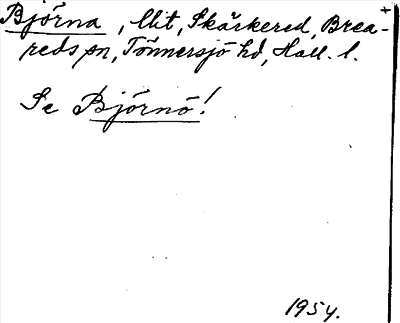 Björna, lit, Skärkered, Brea-
reds sn, Tönnersjö hd, Hall. l.
Se Björnö!
1954.